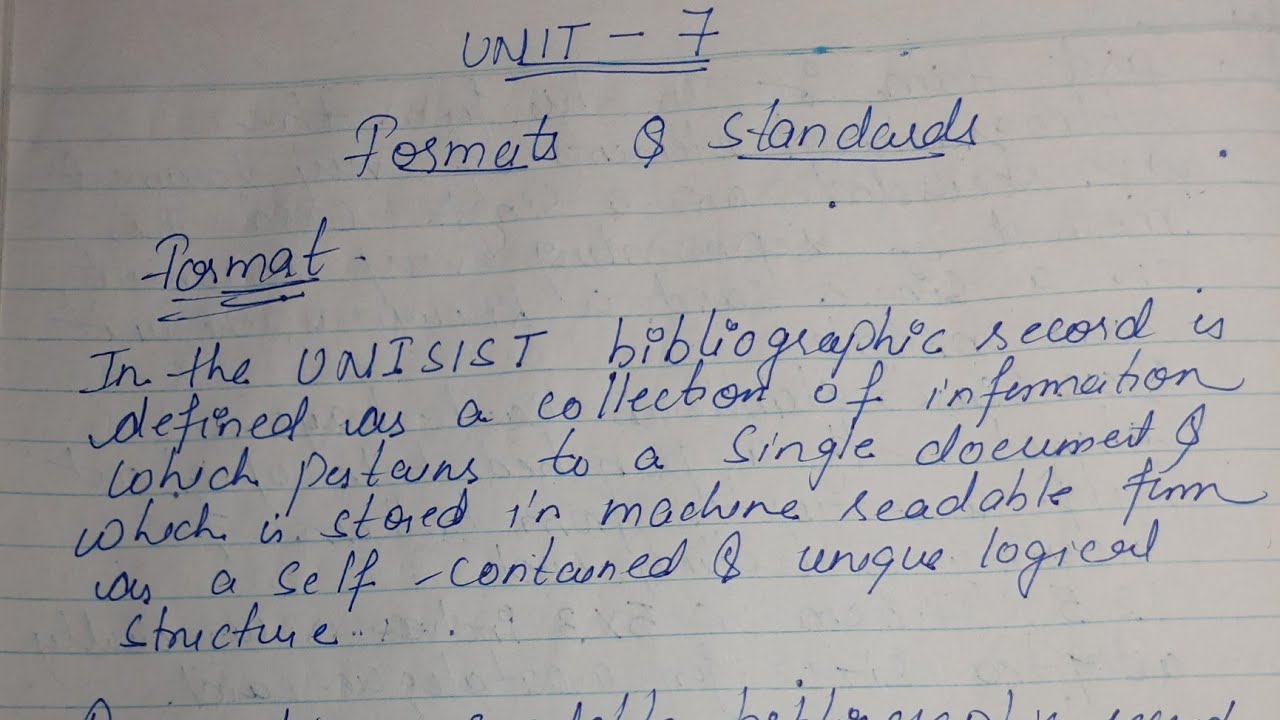 UNIT - 7
Formats & Standards
Format.
In the UNISIST bibliographic record is
defined as a collection of information
which pertains to a single document &
which is stored in machine readable form
as a self-contained & unique logical
structure.